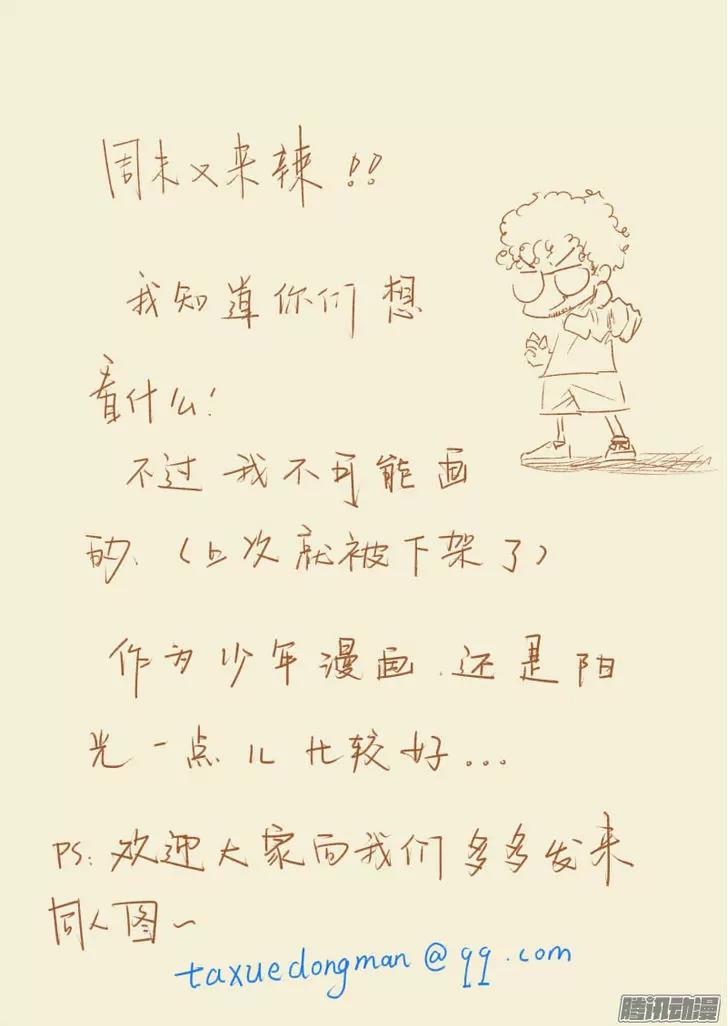 周末又来辣!!
我知道你们想
看什么!
不过我不可能画
的.(上次就被下架了)
作为少年漫画.还是阳
光一点儿比较好...
PS:欢迎大家向我们多多发来
同人图~
taxuedongman@qq.com
腾讯动漫